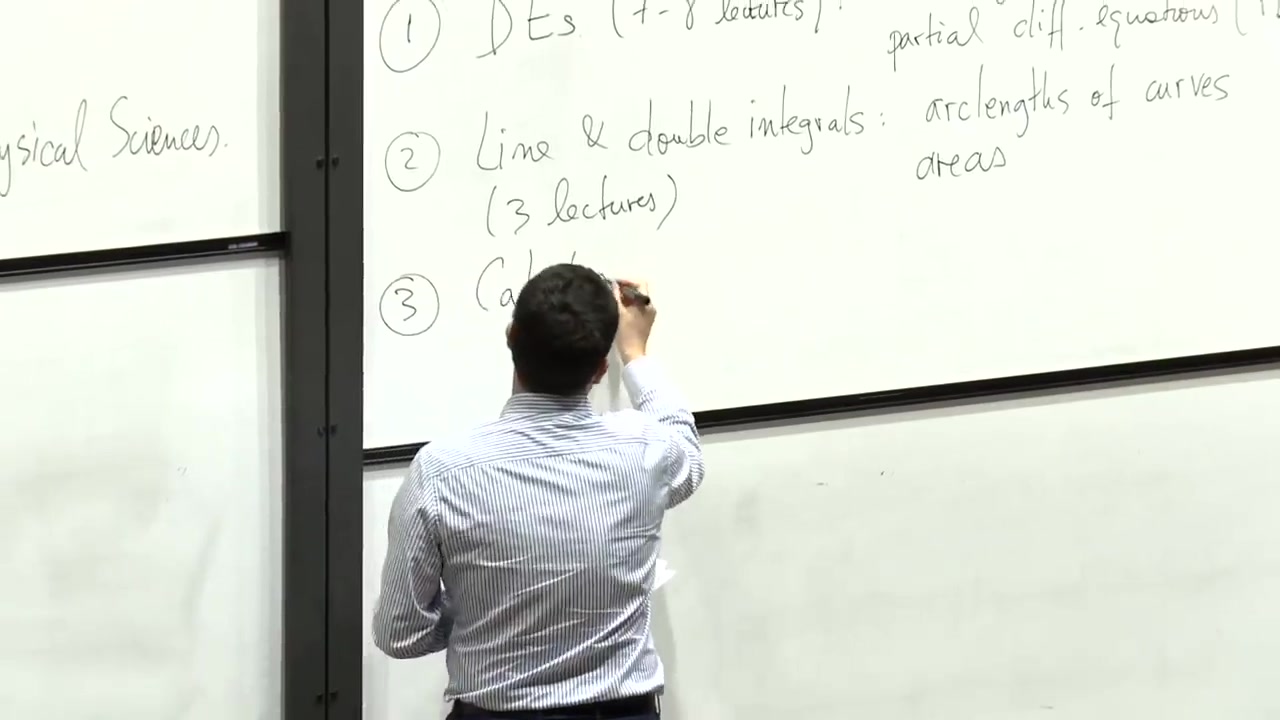 ysical Sciences.
① DEs. (7-8 lectures):
partial diff. equations (
② Line & double integrals: arclengths of curves
areas
(3 lectures)
③